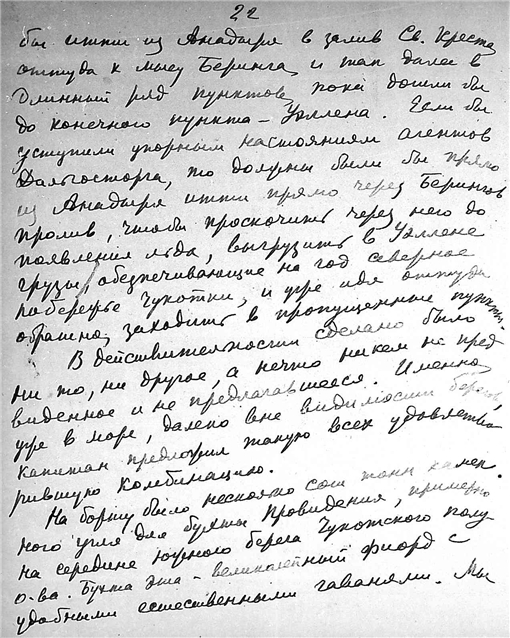 22
бы итти из Анадыря в залив Св. Креста
оттуда к мысу Беринга, и так далее в
длинный ряд пунктов, пока дошли бы
до конечного пункта – Уэллена. Если бы
уступили упорным настояниям агентов
Дальгосторга, то должны были бы прямо
из Анадыря итти прямо через Берингов
пролив, чтобы проскочить через него до
появления льда, выгрузить в Уэллене
грузы, обезпечивающие на год северное
побережье Чукотки, и уже идя оттуда
обратно, заходить в пропущенные пункты.
В действительности сделано было
ни то, ни другое, а нечто никем не пред
виденное и не предлагавшееся. Именно,
уже в море, далеко вне видимости берегов,
капитан предложил такую всех удовлетво
рившую комбинацию.
На борту было несколько сот тонн камен
ного угля для бухты Провидения, примерно
на середине южного берега Чукотского полу
о-ва. Бухта эта – великолепный фиорд с
удобными естественными гаванями. Мы